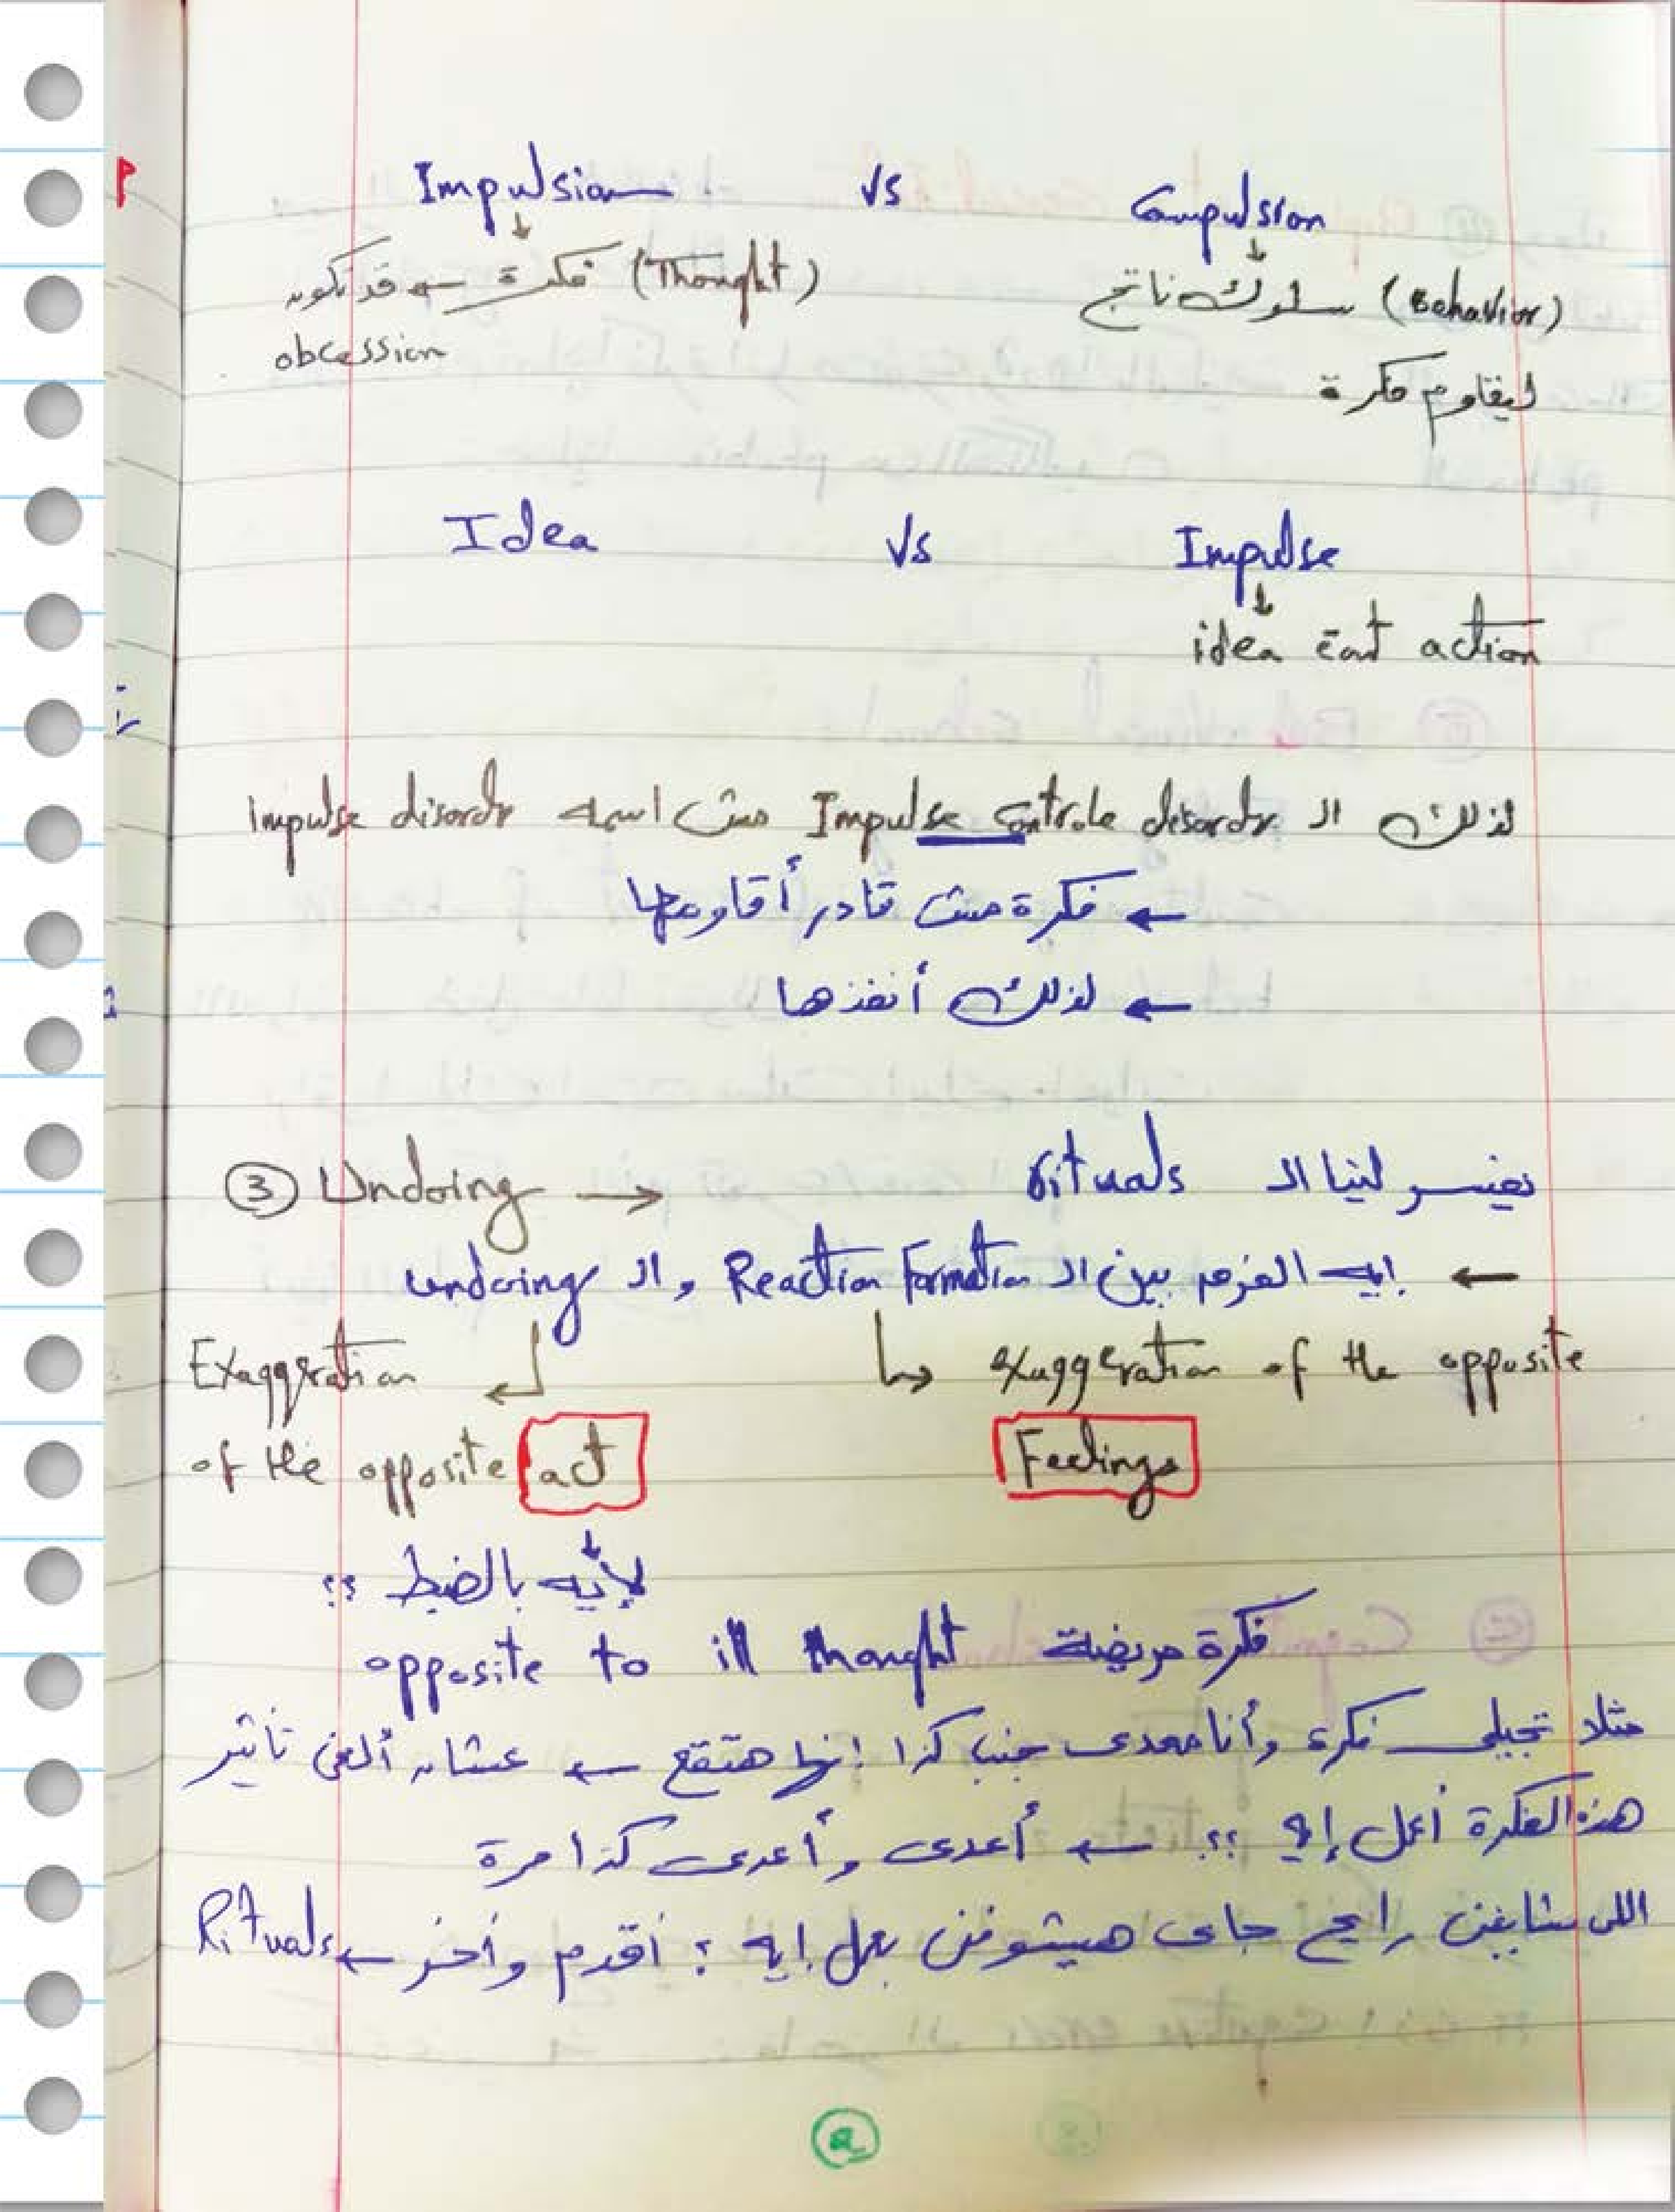 Impulsion vs Compulsion
فكرة (Thought) ← قد تكون
obcession
سلوك ناتج (Behavior)
ليقاوم فكرة
Idea vs Impulse
idea c̄out action
لذلك الـ Impulse controle disorder مش اسمه Impulse disorder
← فكرة مش قادر أقاومها
← لذلك أنفذها
③ Undoing → تفسر لنا الـ Rituals
← إيه الفرق بين الـ Reaction Formation والـ undoing
↳ exaggeration of the opposite
Feelings
Exaggeration
of the opposite act
لإيه بالضبط ؟؟
opposite to ill thought فكرة مريضة
مثلا تجيلى فكرة وأنا معدى جنب كذا إنها هتقع ← عشان ألغى تأثير
هذه الفكرة أعمل إيه ؟؟ ← أعدى وأعدى كذا مرة
اللى شايفنى رايح جاى هيشوفنى بعمل إيه ؟ أقدم وأخر ← Rituals